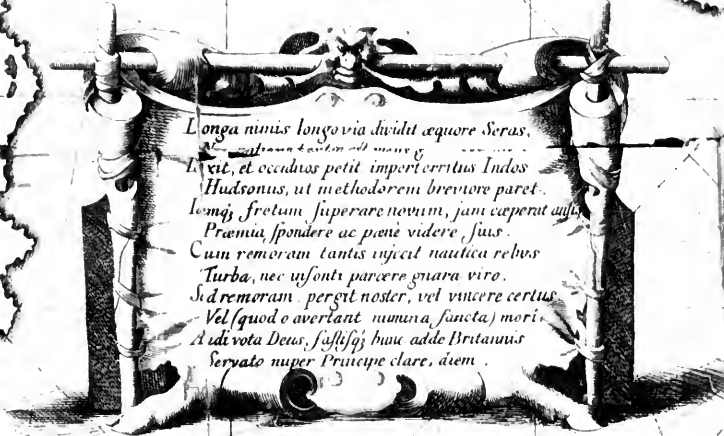 Longa nimis longo via dividit æquore Seras,
Dixit, et occiduos petit imperterritus Indos
Hudsonus, ut methodorem breviore paret.
Iamq, fretum superare novum, jam cæperat
Præmia spondere ac pænè videre suis.
Cum remoram tantis injecit nautica rebus
Turba, nec insonti parcere gnara viro.
Sed remoram pergit noster, vel vincere certus
Vel (quod o avertant numina sancta) mori
Audi vota Deus, fastisq, hunc adde Britannis
Servato nuper Principe clare, diem.